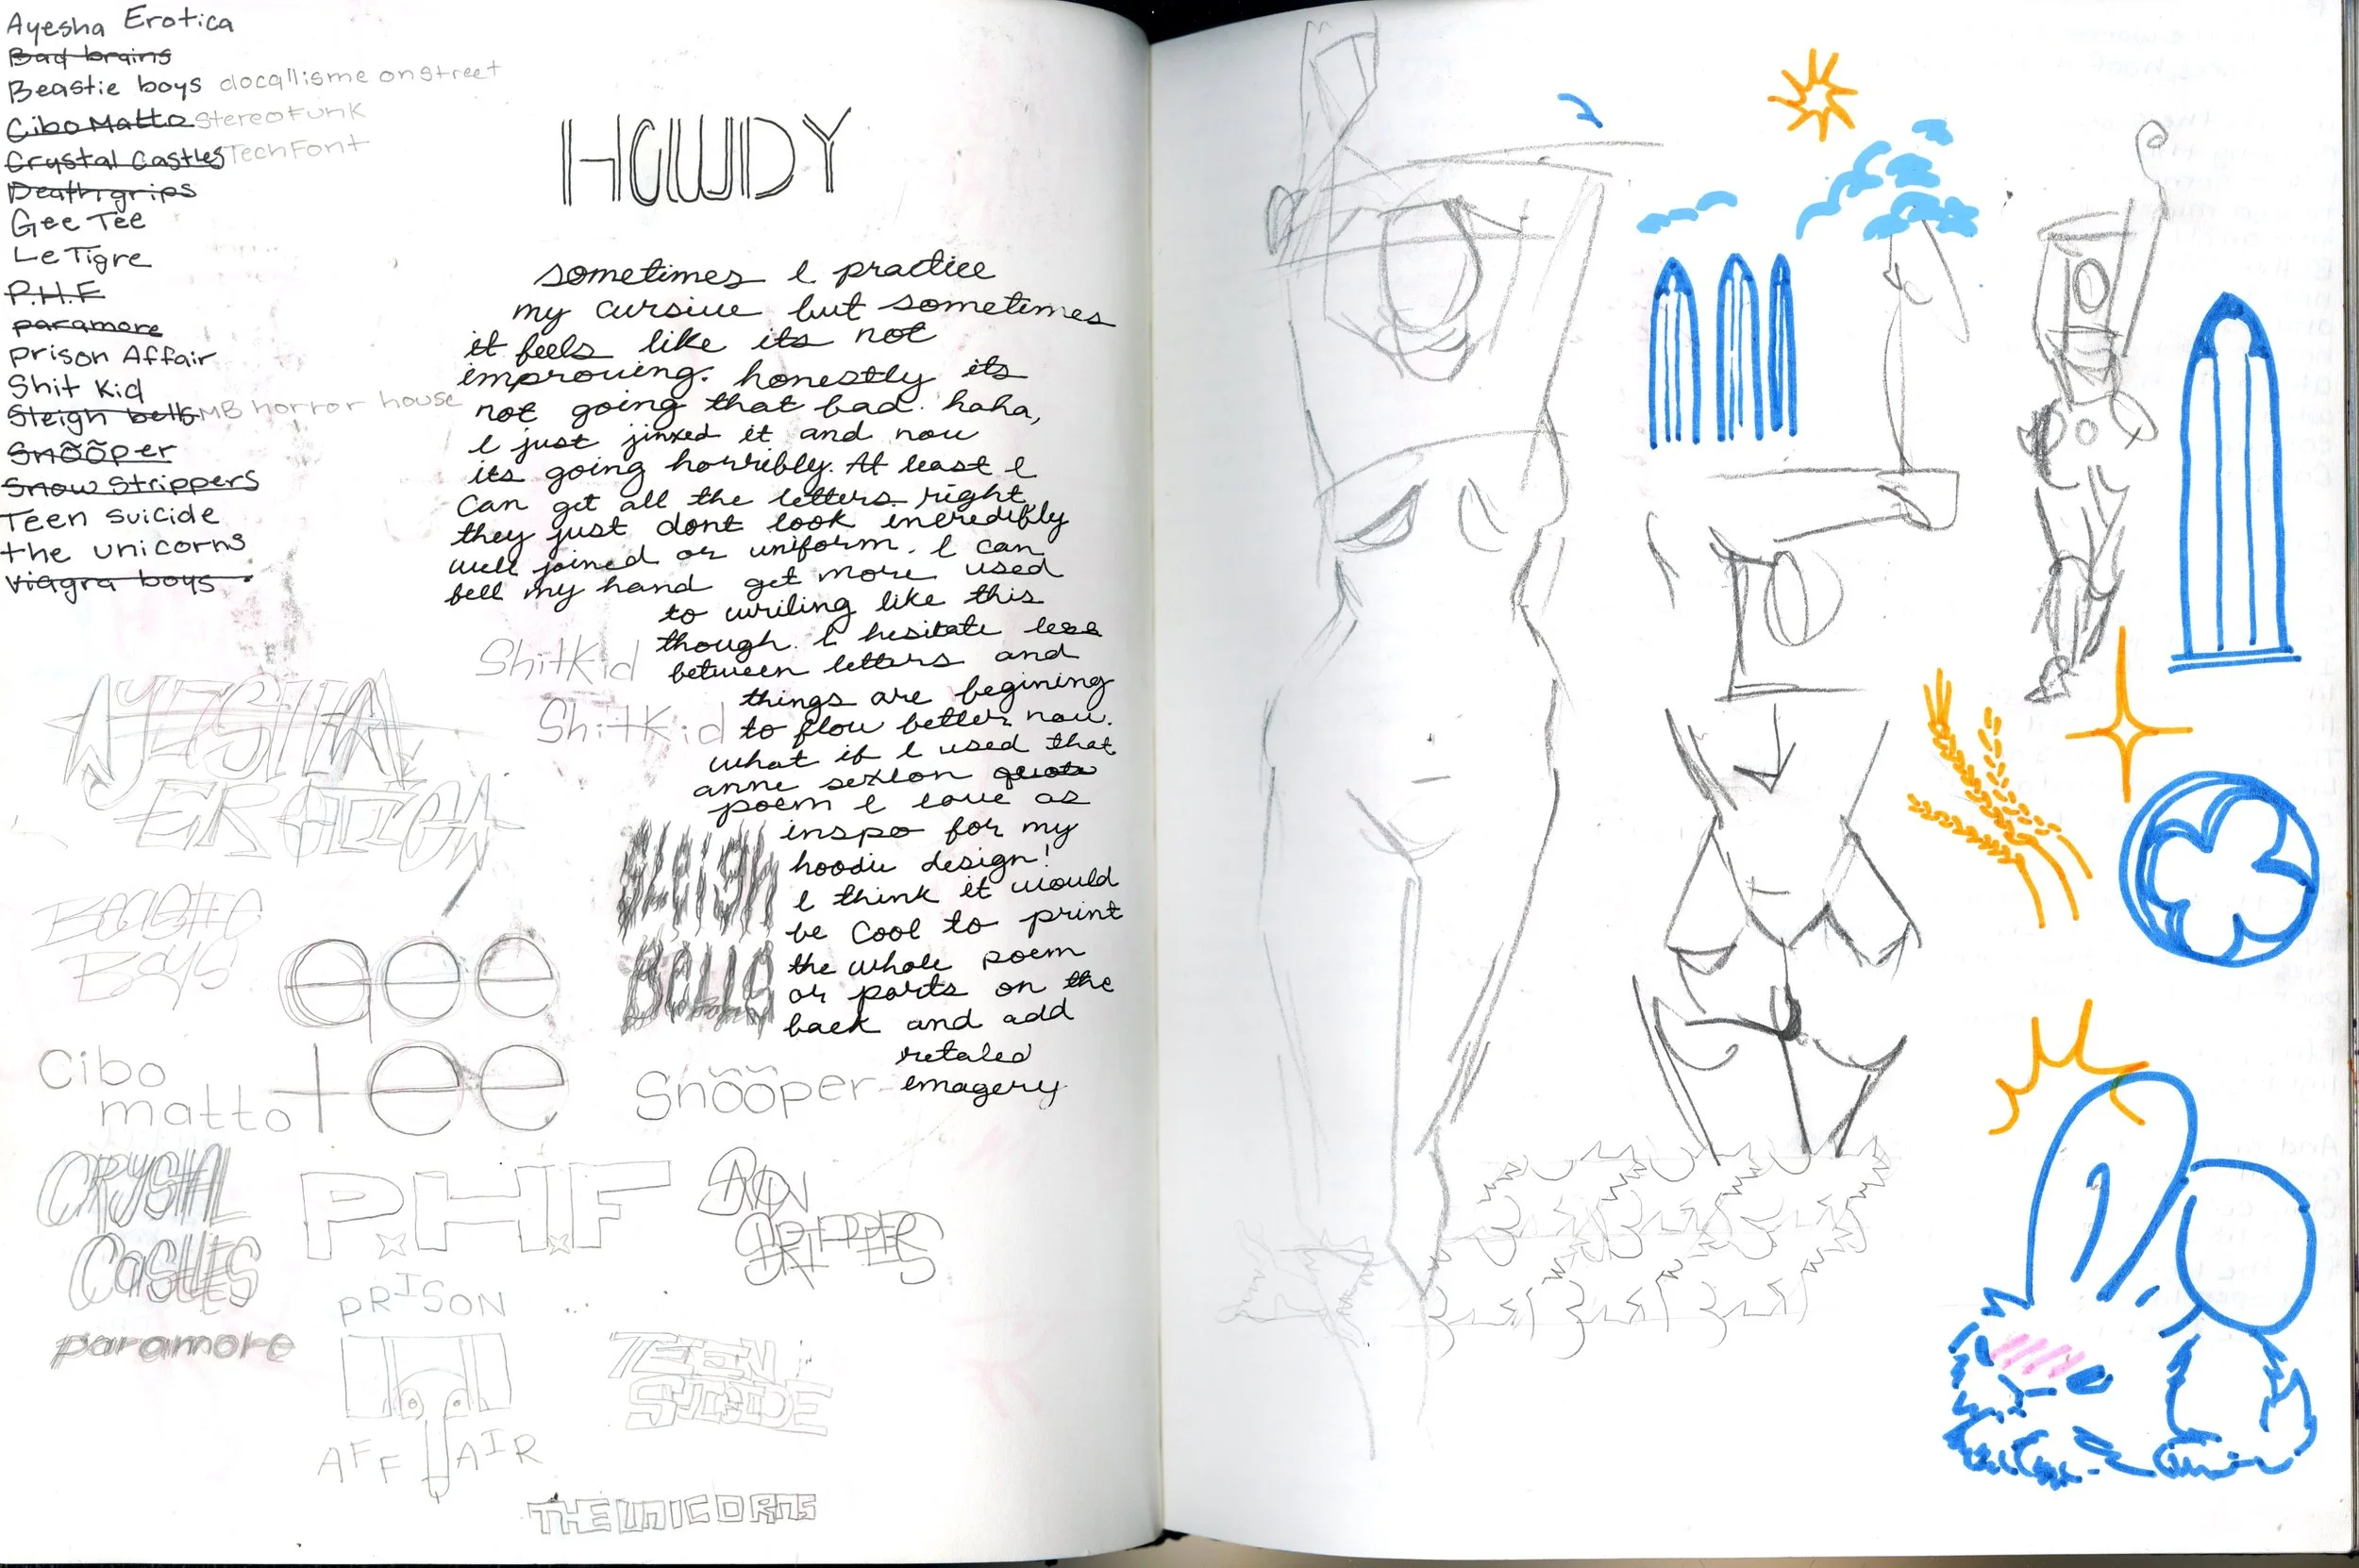 Ayesha Erotica
Bad brains
Beastie boys docallisme on street
Cibo Matto Stereo Funk
Crystal Castles Tech Font
Death grips
Gee Tee
Le Tigre
P.H.F
paramore
prison Affair
Shit Kid
Sleigh bells MB horror house
Snõõper
Snow Strippers
Teen suicide
the unicorns
viagra boys
HOWDY
sometimes I practice
my cursive but sometimes
it feels like its not
improving. honestly its
not going that bad. haha,
I just jinxed it and now
its going horribly. At least I
can get all the letters right
they just dont look incredibly
well joined or uniform. I can
fell my hand get more used
to writing like this
though. I hesitate less
between letters and
things are begining
to flow better now.
what if I used that
anne sexton quote
poem I love as
inspo for my
hoodie design!
I think it would
be cool to print
the whole poem
or parts on the
back and add
retaled
imagery
ShitKid
ShitKid
AYESHA
EROTICA
BEASTIE
BOYS
gee
tee
SLEIGH
BELLS
Cibo
matto
Snõõper
CRYSTAL
CASTLES
P.H.F
SNOW
STRIPPERS
paramore
PRISON
AFF AIR
TEEN
SUICIDE
THE UNICORNS